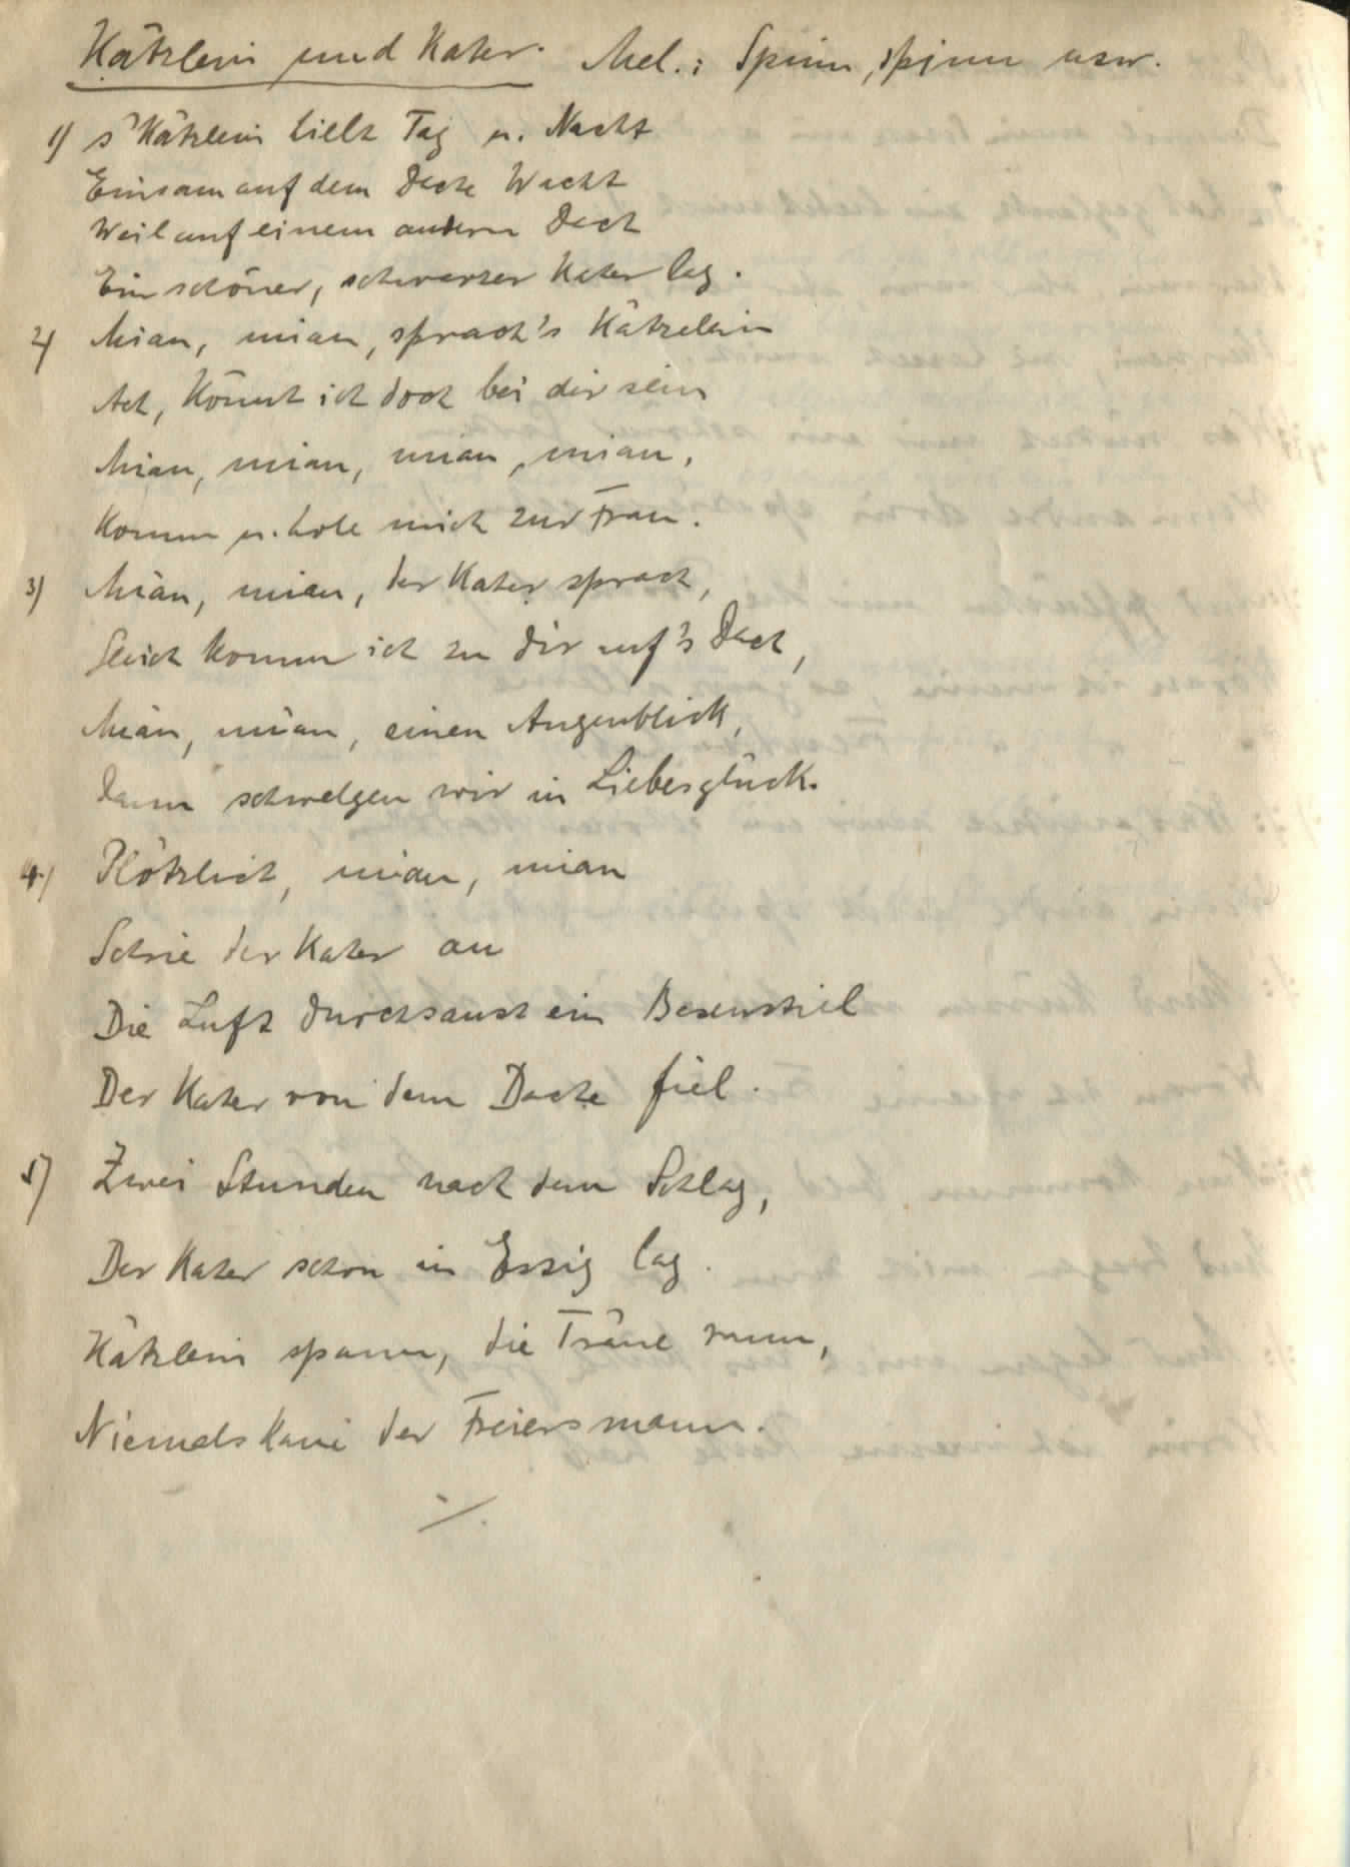 Kätzlein und Kater. Mel.: Spinn, spinn usw.
1) s'Kätzlein hielt Tag u. Nacht
Einsam auf dem Dache Wacht
Weil auf einem andern Dach
Ein schöner, schwarzer Kater lag.
2) Miau, miau, sprach's Kätzelein
Ach, könnt ich doch bei dir sein
Miau, miau, miau, miau,
Komm u. hole mich zur Frau.
3) Miau, miau, der Kater sprach,
Gleich komm ich zu dir auf's Dach,
Miau, miau, einen Augenblick,
Dann schwelgen wir in Liebesglück.
4.) Plötzlich, miau, miau
Schrie der Kater au
Die Luft durchsaust ein Besenstiel
Der Kater von dem Dache fiel.
5) Zwei Stunden nach dem Schlag,
Der Kater schon in Essig lag.
Kätzlein spann, die Träne rann,
Niemals kam der Freiersmann.